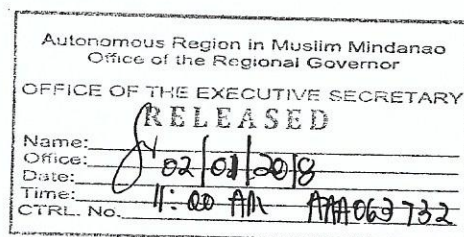 Autonomous Region in Muslim Mindanao
Office of the Regional Governor
OFFICE OF THE EXECUTIVE SECRETARY
RELEASED
Name:
Office:
Date: 02/01/2018
Time: 11:00 AM
CTRL. No. AAA063732